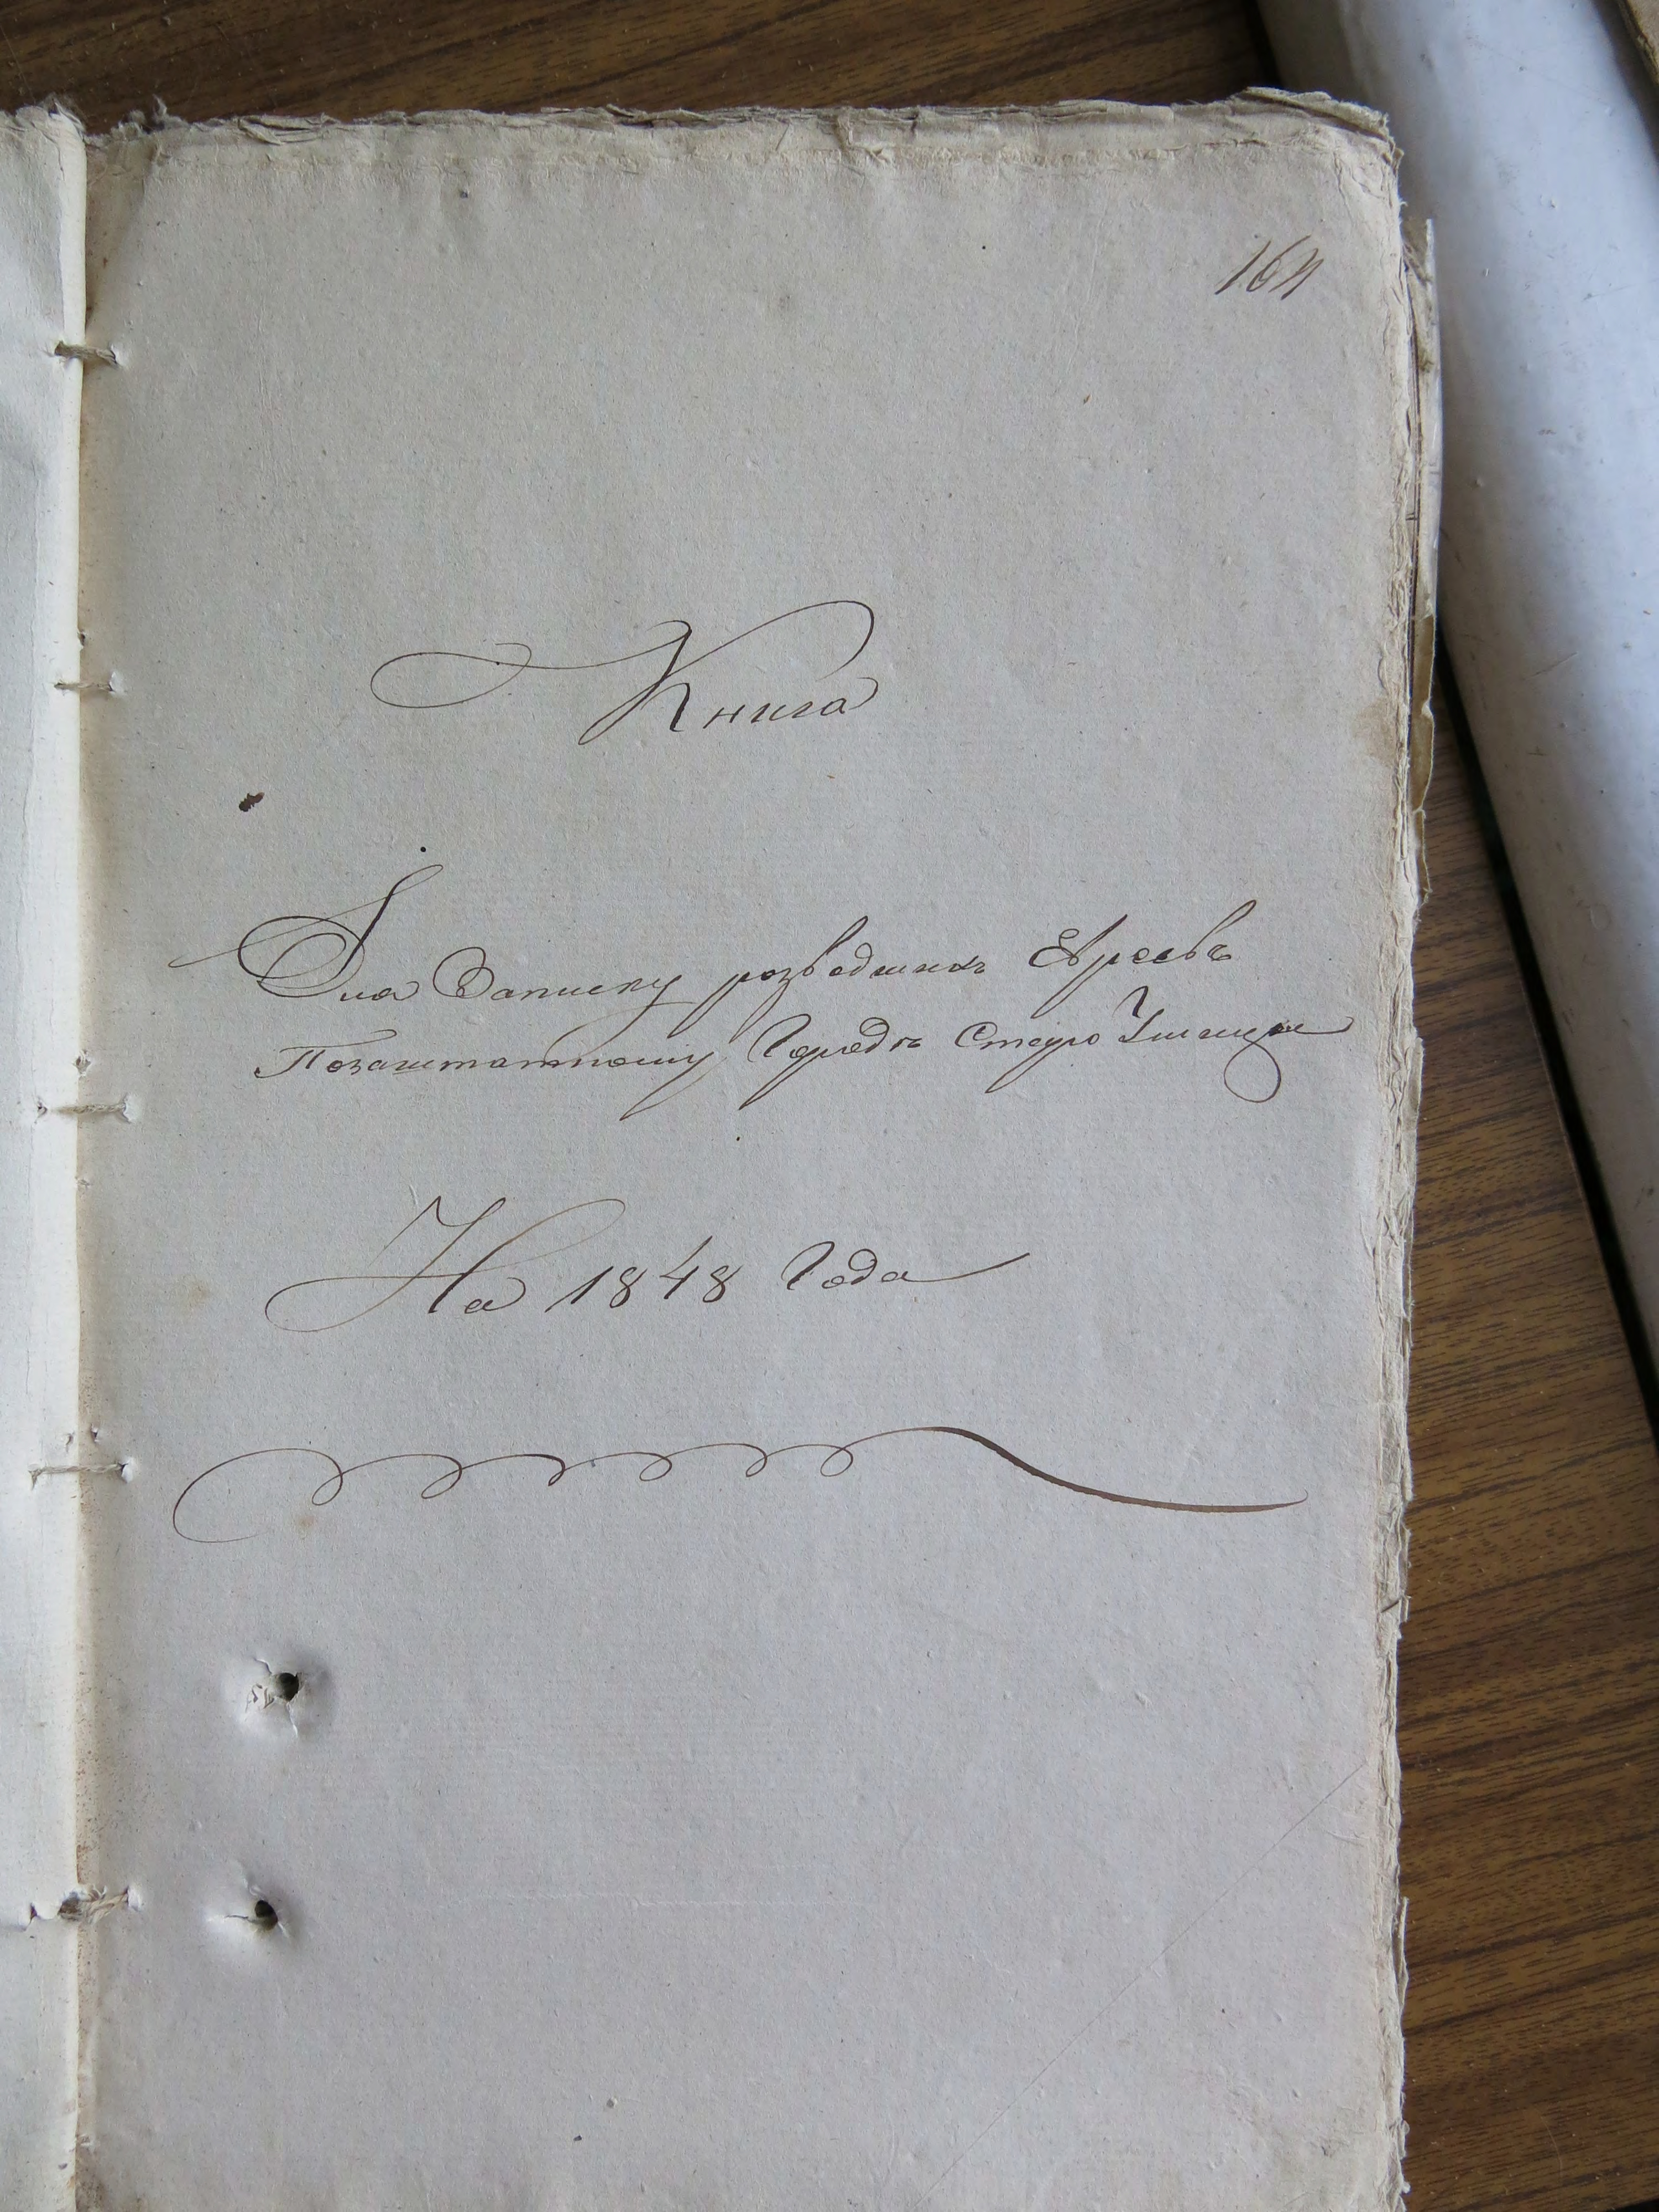 164
Книга
Для Записку розведших Евреевъ
Позаштатному Городъ Стауро Ушицы
На 1848 Года